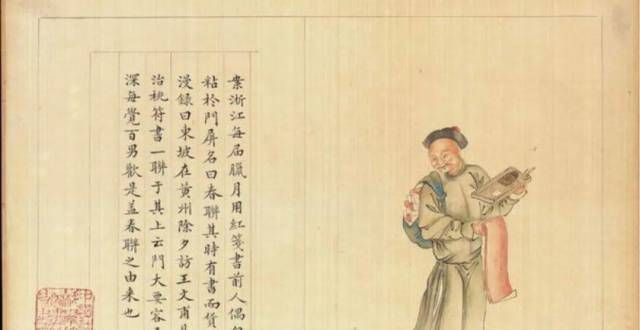 案浙江每届臘月用紅箋書前人偶
粘於門屏名曰春聯其時有書而貨
漫錄曰東坡在黃州除夕訪王文甫見
治桃符書一聯于其上云門大要容
深每覺百男歡是盖春聯之由来也